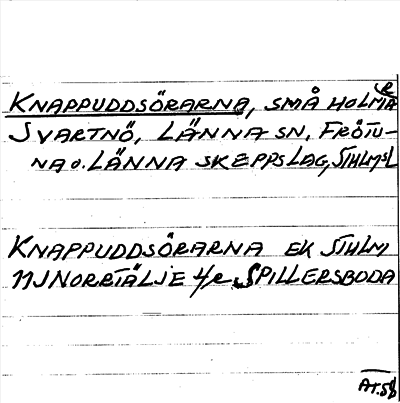 KNAPPUDDSÖRARNA, SMÅ HOLMAR
SVARTNÖ, LÄNNA SN, FRÖTU-
NA O. LÄNNA SKEPPSLAG, STHLMSL
KNAPPUDDSÖRARNA EK STHLM
11J NORRTÄLJE SPILLERSBODA